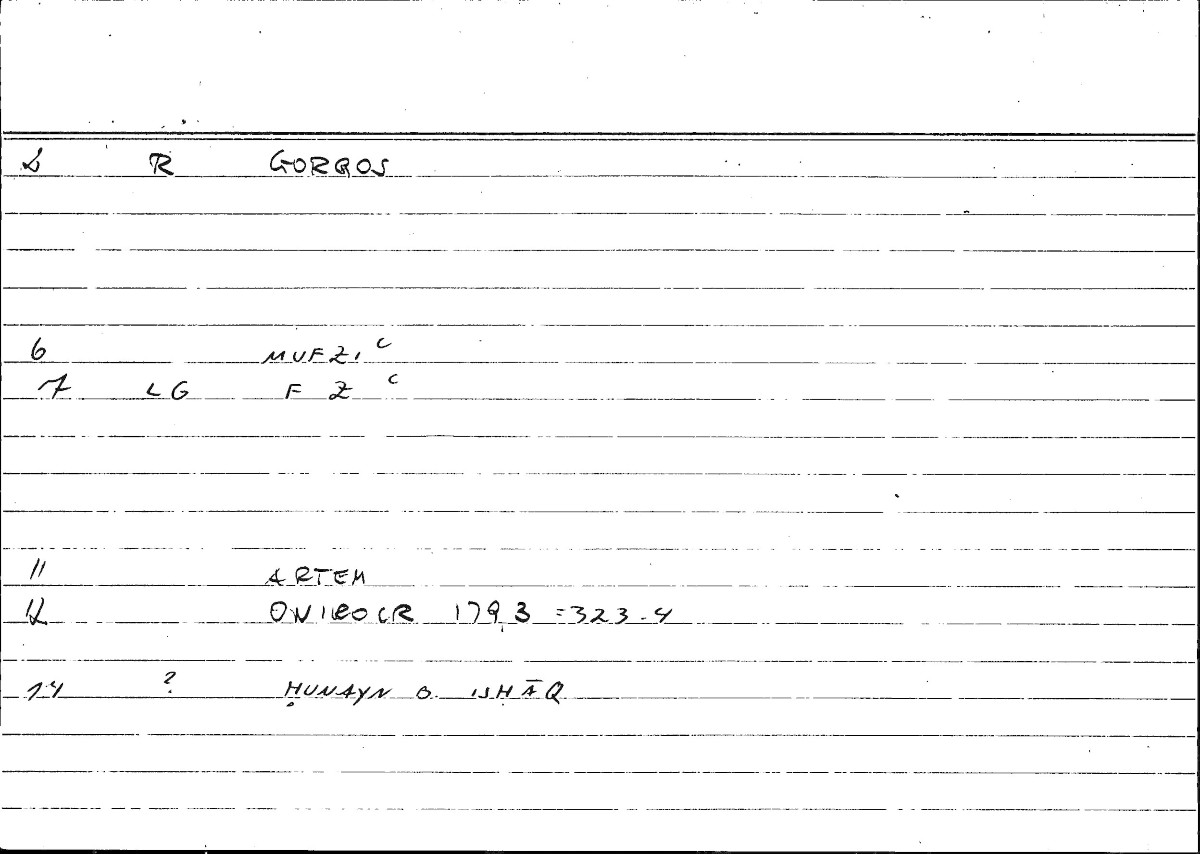 2 R GORGOS
6 MUFZIᶜ
7 LG F Zᶜ
11 ARTEM
12 ONIROCR 179,3 =323.4
14 ? ḤUNAYN B. ISḤĀQ